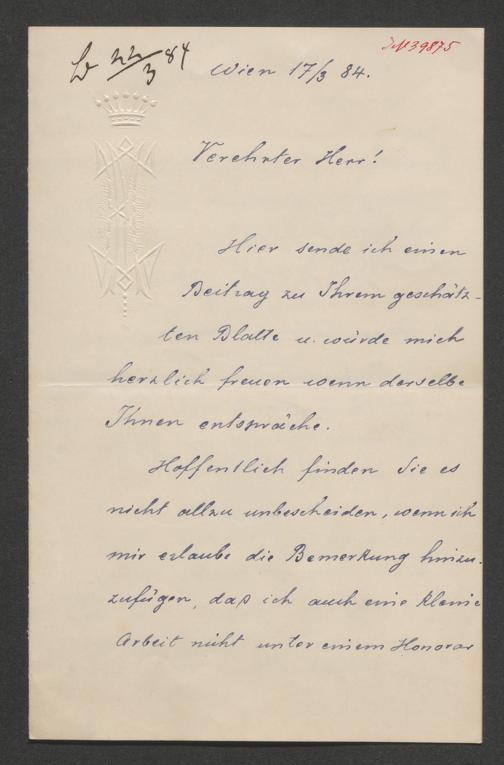 22/3 84
Wien 17/3 84.
Verehrter Herr!
Hier sende ich einen
Beitrag zu Ihrem geschätz-
ten Blatte u. würde mich
herzlich freuen wenn derselbe
Ihnen entspräche.
Hoffentlich finden Sie es
nicht allzu unbescheiden, wenn ich
mir erlaube die Bemerkung hinzu-
zufügen, daß ich auch eine kleine
Arbeit nicht unter einem Honorar